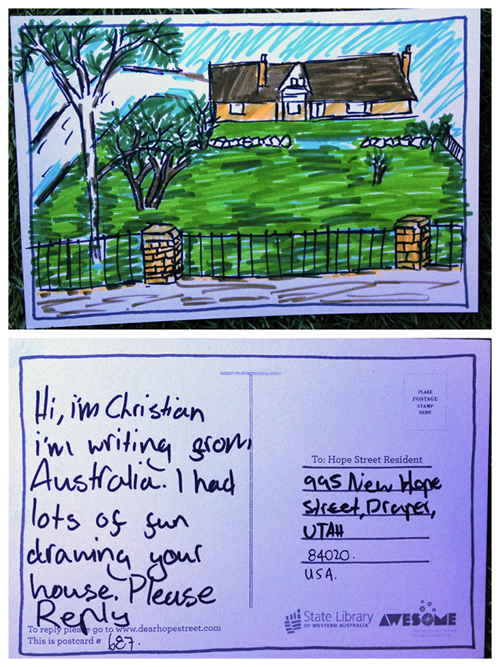 Hi, i'm Christian
i'm writing from
Australia. I had
lots of fun
drawing your
house. Please
Reply
To reply please go to www.dearhopestreet.com
This is postcard # 687.
PLACE
POSTAGE
STAMP
HERE
To: Hope Street Resident
995 New Hope
Street, Draper,
UTAH
84020.
USA.
State Library
OF WESTERN AUSTRALIA
AWESOME